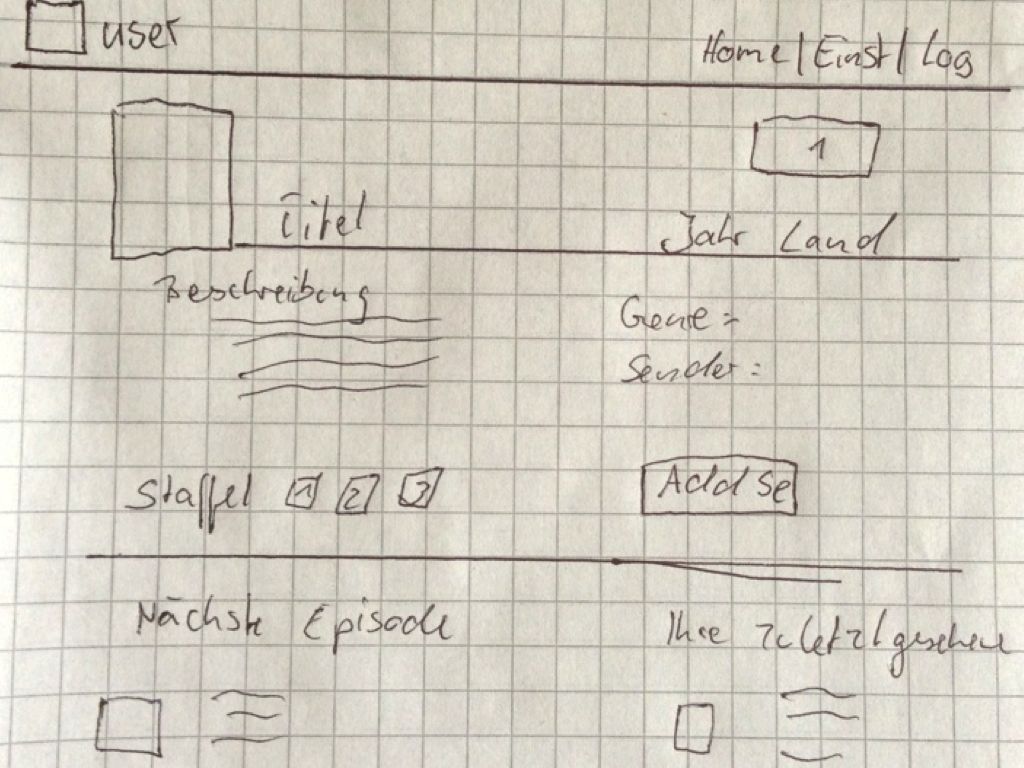 user Home | Einst | Log
1
Titel Jahr Land
Beschreibung
Genre:
Sender:
Staffel 1 2 3 Add Se
Nächste Episode Ihre zuletzt gesehene